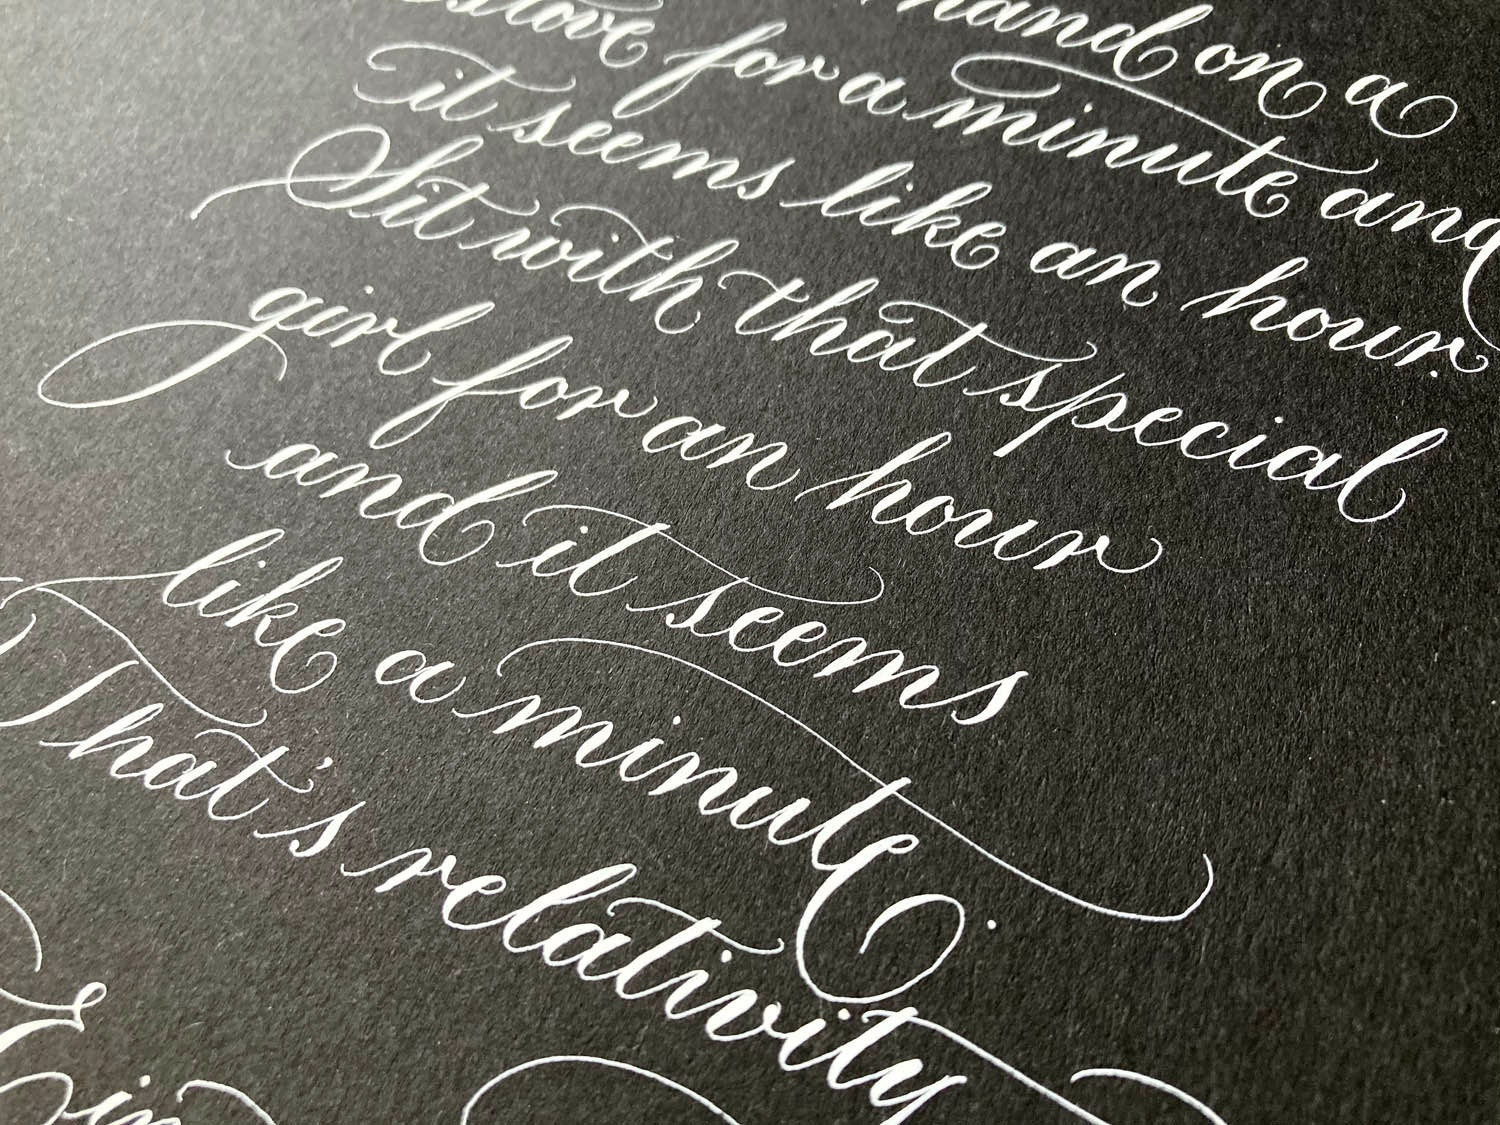 hand on a
stove for a minute and
it seems like an hour.
Sit with that special
girl for an hour
and it seems
like a minute.
That's relativity
Ein